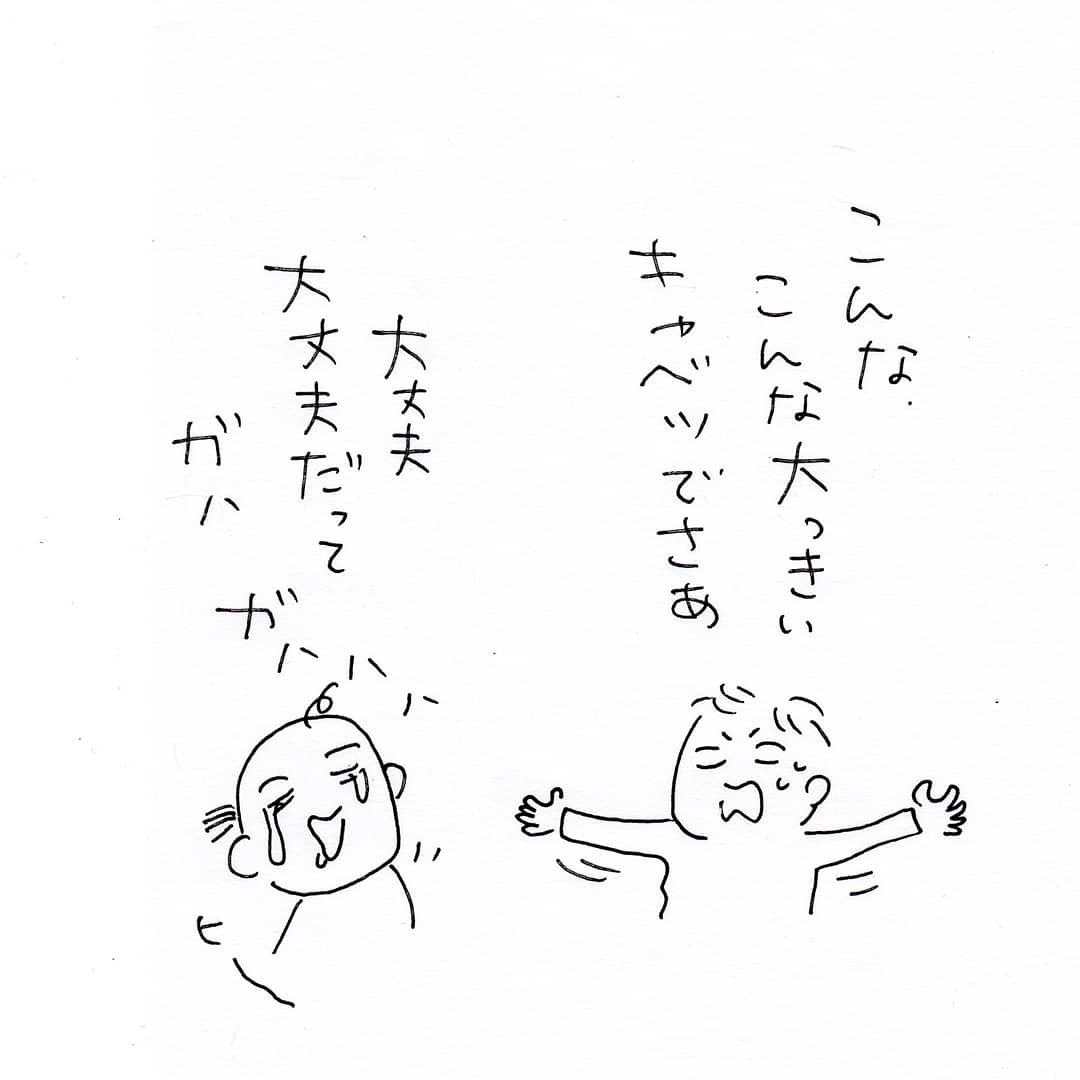 こんな
こんな大っきい
キャベツでさぁ
大丈夫
大丈夫だって
ガハ
ガハハハ
ヒー